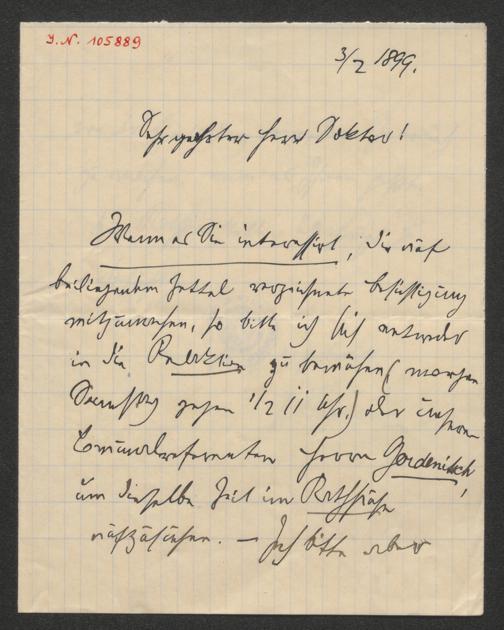 I.N. 105889
3/2 1899.
Sehr geehrter Herr Doktor!
Wenn es Sie interessirt, die auf
beiliegendem Zettel verzeichnete Besichtigung
mitzumachen, so bitte ich sich entweder
in die Redaktion zu bemühen (morgen
Samstag gegen 1/2 11 Uhr) oder unseren
Communalreferenten Herrn
um dieselbe Zeit im Rathhause
aufzusuchen. — Ich bitte aber